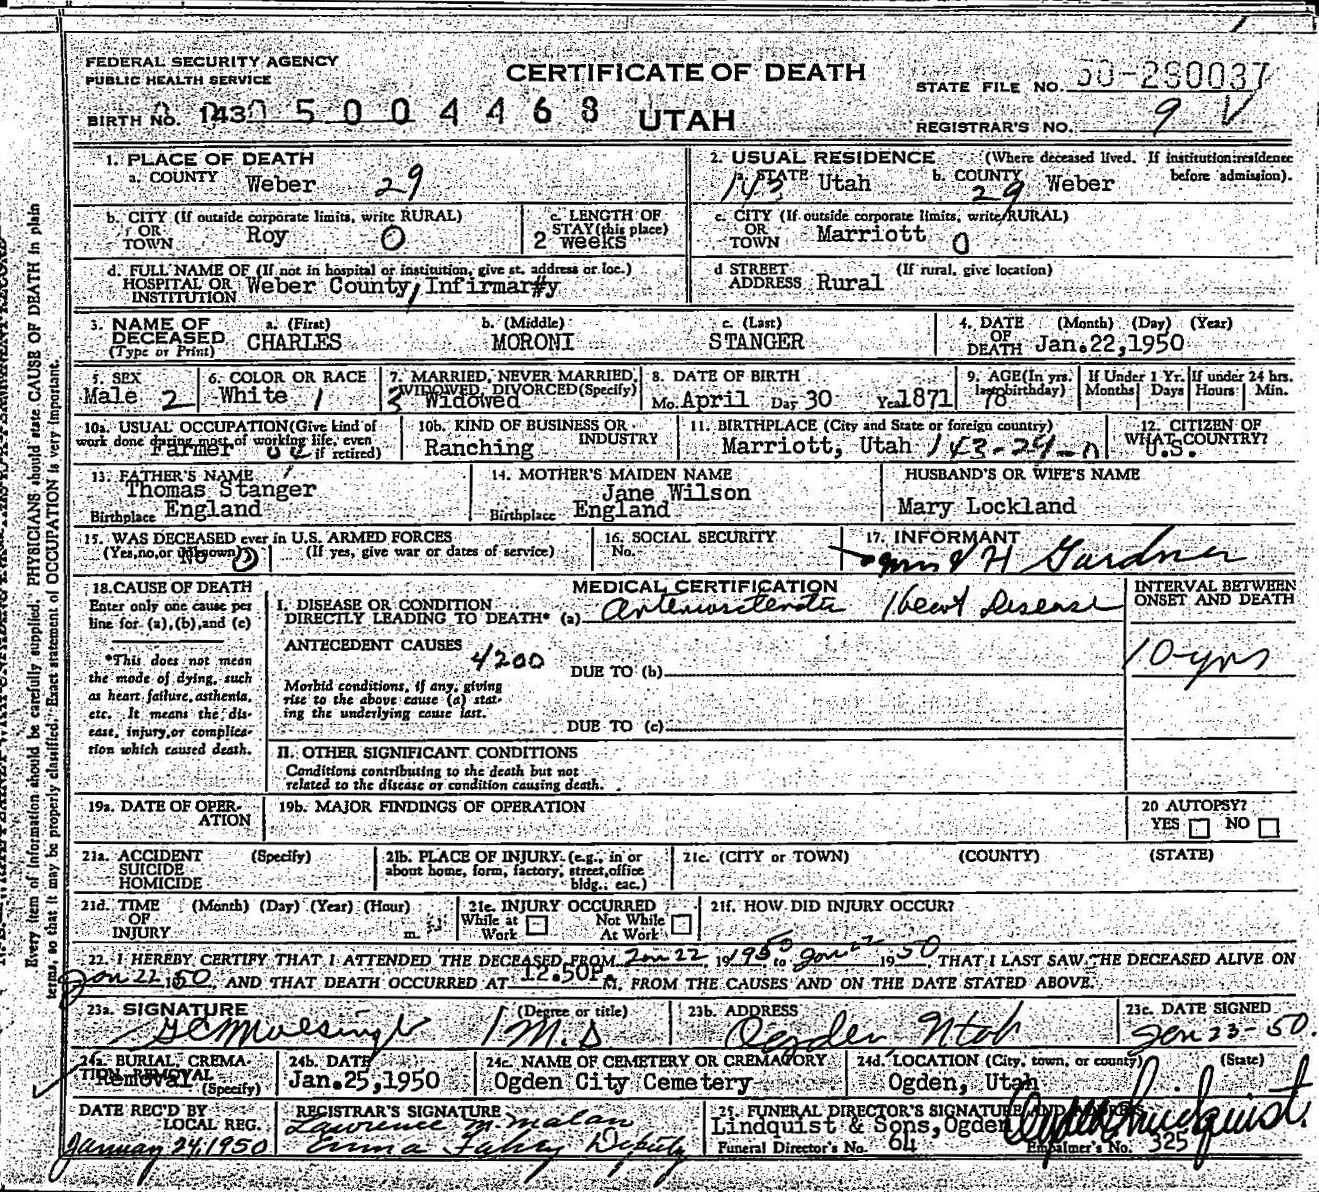 FEDERAL SECURITY AGENCY
PUBLIC HEALTH SERVICE
CERTIFICATE OF DEATH
UTAH
STATE FILE NO. 50-280037
BIRTH NO. 143 0 5 0 0 4 4 6 8
REGISTRAR'S NO. 9
1. PLACE OF DEATH
a. COUNTY Weber 29
2. USUAL RESIDENCE (Where deceased lived. If institution:residence before admission).
143 a. STATE Utah b. COUNTY 29 Weber
b. CITY (If outside corporate limits, write RURAL) OR TOWN Roy 0
c. LENGTH OF STAY (this place) 2 weeks
c. CITY (If outside corporate limits, write RURAL) OR TOWN Marriott 0
d. FULL NAME OF (If not in hospital or institution, give st. address or loc.) HOSPITAL OR INSTITUTION Weber County Infirmar#y
d STREET ADDRESS (If rural, give location) Rural
3. NAME OF DECEASED (Type or Print)
a. (First) CHARLES b. (Middle) MORONI c. (Last) STANGER
4. DATE OF DEATH (Month) (Day) (Year) Jan.22,1950
5. SEX Male 2
6. COLOR OR RACE White 1
7. MARRIED, NEVER MARRIED, WIDOWED, DIVORCED(Specify) 3 Widowed
8. DATE OF BIRTH Mo. April Day 30 Year 1871
9. AGE(In yrs. last birthday) 78
If Under 1 Yr. Months Days
If under 24 hrs. Hours Min.
10a. USUAL OCCUPATION(Give kind of work done during most of working life, even if retired) Farmer
10b. KIND OF BUSINESS OR INDUSTRY Ranching
11. BIRTHPLACE (City and State or foreign country) Marriott, Utah 143-29-0
12. CITIZEN OF WHAT COUNTRY? U.S.
13. FATHER'S NAME Thomas Stanger
Birthplace England
14. MOTHER'S MAIDEN NAME Jane Wilson
Birthplace England
HUSBAND'S OR WIFE'S NAME
Mary Lockland
15. WAS DECEASED ever in U.S. ARMED FORCES
(Yes,no,or unknown) No (If yes, give war or dates of service)
16. SOCIAL SECURITY No.
17. INFORMANT
Gardner
18. CAUSE OF DEATH
Enter only one cause per line for (a),(b),and (c)
*This does not mean the mode of dying, such as heart failure, asthenia, etc. It means the disease, injury,or complication which caused death.
MEDICAL CERTIFICATION
I. DISEASE OR CONDITION DIRECTLY LEADING TO DEATH* (a) Heart Disease
ANTECEDENT CAUSES 4200
Morbid conditions, if any, giving rise to the above cause (a) stating the underlying cause last.
DUE TO (b)
DUE TO (c)
II. OTHER SIGNIFICANT CONDITIONS
Conditions contributing to the death but not related to the disease or condition causing death.
INTERVAL BETWEEN ONSET AND DEATH
10 yrs
19a. DATE OF OPERATION
19b. MAJOR FINDINGS OF OPERATION
20 AUTOPSY?
YES NO
21a. ACCIDENT SUICIDE HOMICIDE (Specify)
21b. PLACE OF INJURY (e.g., in or about home, form, factory, street,office bldg., eac.)
21c. (CITY or TOWN) (COUNTY) (STATE)
21d. TIME OF INJURY (Month) (Day) (Year) (Hour) m.
21e. INJURY OCCURRED
While at Work Not While At Work
21f. HOW DID INJURY OCCUR?
22. I HEREBY CERTIFY THAT I ATTENDED THE DECEASED FROM Jan 22, 1950 to Jan 22 1950, THAT I LAST SAW THE DECEASED ALIVE ON
Jan 22 50, AND THAT DEATH OCCURRED AT 12.50P. M. FROM THE CAUSES AND ON THE DATE STATED ABOVE.
23a. SIGNATURE (Degree or title) M.D
23b. ADDRESS Ogden Utah
23c. DATE SIGNED Jan 23-50.
24a. BURIAL, CREMATION, REMOVAL (Specify) Removal
24b. DATE Jan.25,1950
24c. NAME OF CEMETERY OR CREMAGORY Ogden City Cemetery
24d. LOCATION (City, town, or county) (State) Ogden, Utah
DATE REC'D BY LOCAL REG.
January 24,1950
REGISTRAR'S SIGNATURE
Lawrence M. Malan
Emma Deputy
25. FUNERAL DIRECTOR'S SIGNATURE AND ADDRESS
Lindquist & Sons,Ogden Lindquist
Funeral Director's No. 64 Embalmer's No. 325
Every item of information should be carefully supplied. PHYSICIANS should state CAUSE OF DEATH in plain
terms, so that it may be properly classified. Exact statement of OCCUPATION is very important.